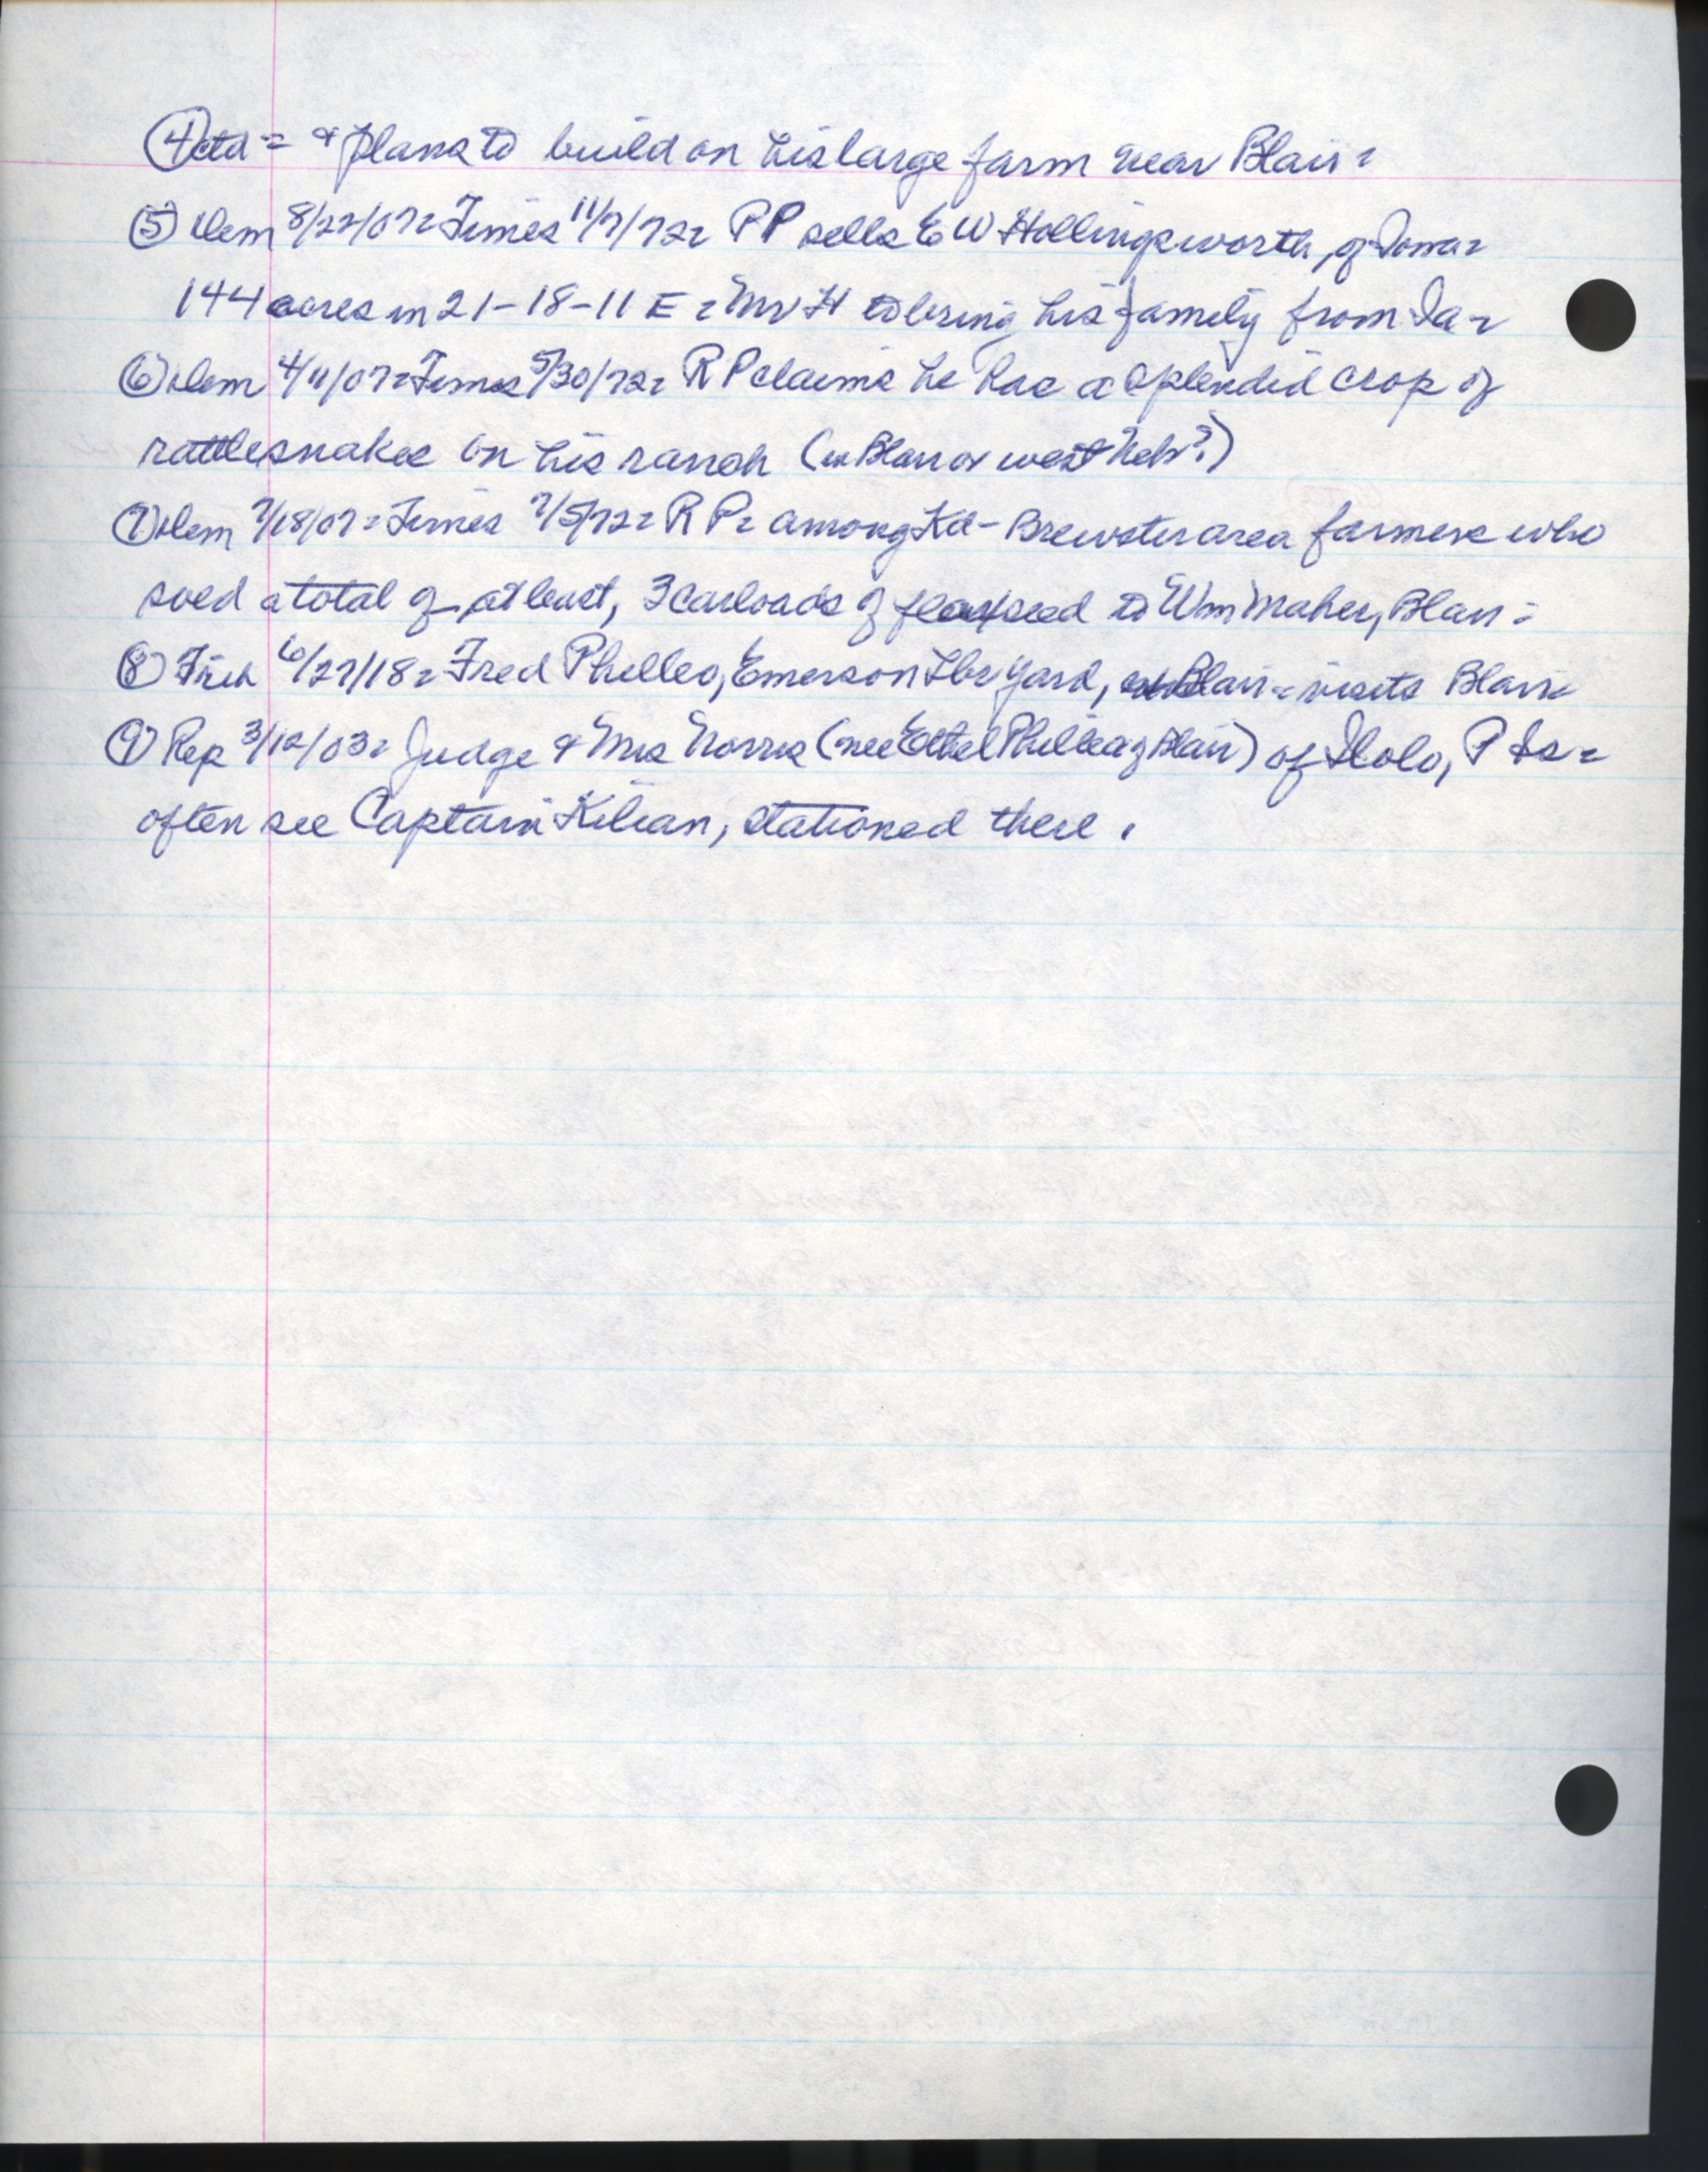 ④ctd = & plans to build on his large farm near Blair =
⑤ Dem 8/22/07 = Times 11/7/72 = RP sells E W Hollingsworth, of Iowa =
144 acres in 21-18-11 E = Mr H to bring his family from Ia =
⑥ Dem 4/11/07 = Times 5/30/72 = R P claims he has a splendid crop of
rattlesnakes on his ranch (in Blair or west Neb?)
⑦ Dem 7/18/07 = Times 7/5/72 = R P = among Kd - Brewster area farmers who
sold a total of, at least, 3 carloads of flaxseed to Wm Maher, Blair =
⑧ 6/27/18 = Fred Phelleo, Emerson Lbr Yard, exBlair = visits Blair =
⑨ Rep 3/12/03 = Judge & Mrs Norris (nee Ethel Philleo of Blair) of Iloilo, P Is =
often see Captain Kilian, stationed there.